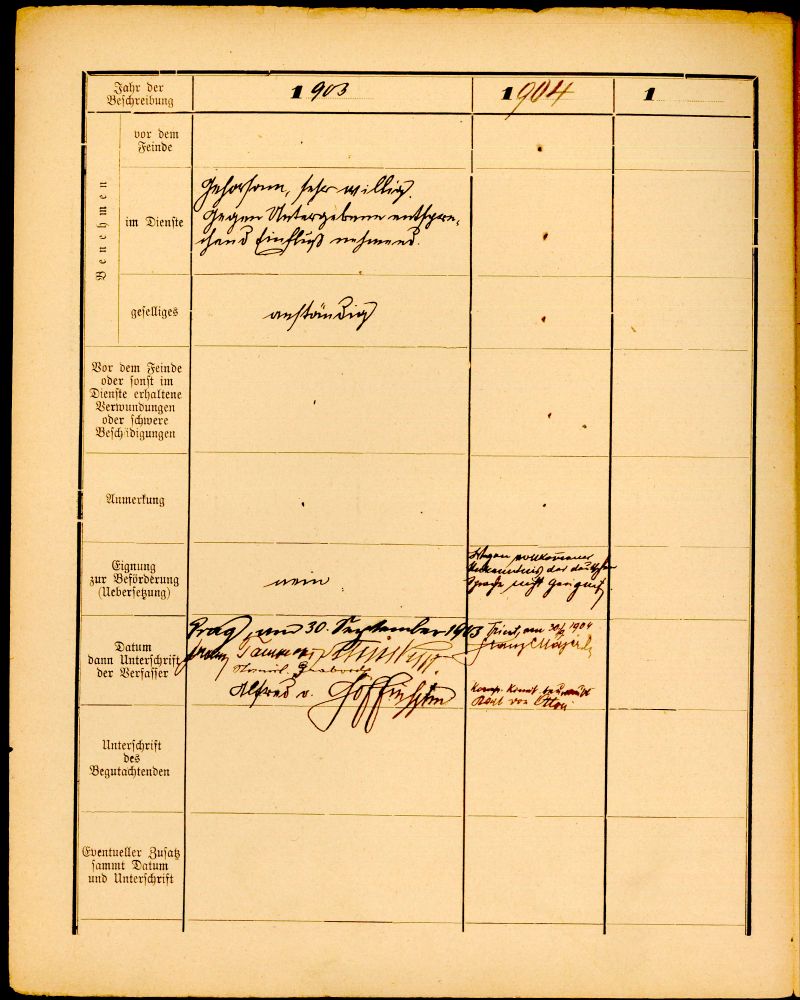 Jahr der
Beschreibung
1903
1904
1
Benehmen
vor dem
Feinde
im Dienste
Gehorsam, sehr willig.
Gegen Untergebene entspre-
chend Einfluß nehmend.
geselliges
anständig
Vor dem Feinde
oder sonst im
Dienste erhaltene
Verwundungen
oder schwere
Beschädigungen
Anmerkung
Eignung
zur Beförderung
(Uebersetzung)
nein
Wegen vollkommener
Unkenntnis der deutschen
Sprache nicht geeignet
Datum
dann Unterschrift
der Verfasser
Prag, am 30. September 1903
Alfred v.
Triest, am 1904
Franz
Unterschrift
des
Begutachtenden
Eventueller Zusatz
sammt Datum
und Unterschrift